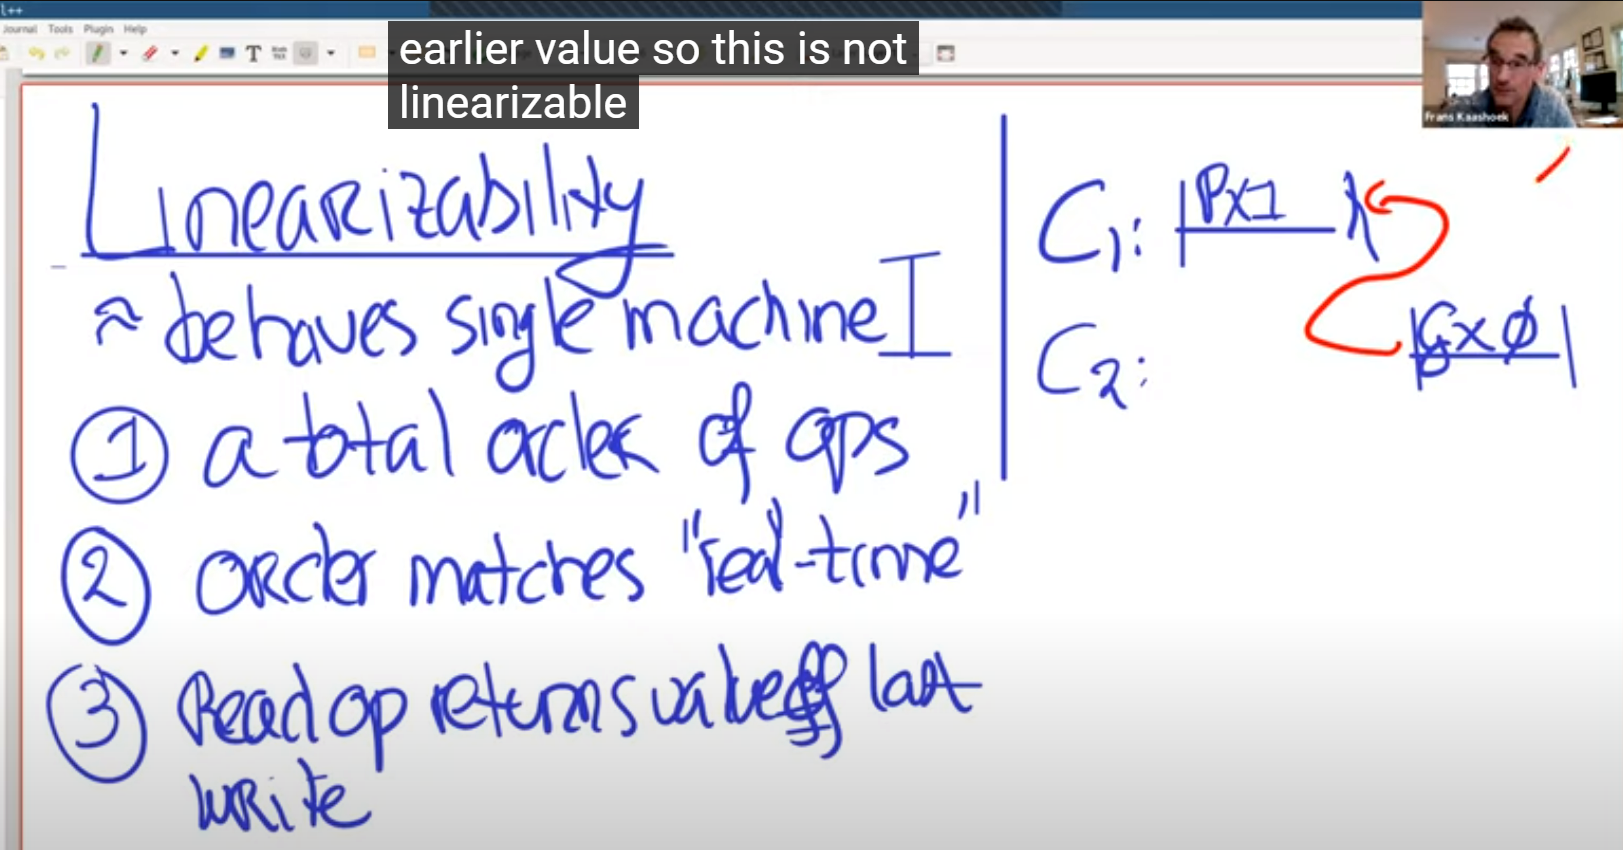 l++
Journal Tools Plugin Help
earlier value so this is not
linearizable
Frans Kaashoek
Linearizability
≈ behaves single machine
① a total order of ops
② order matches "real-time"
③ Read op returns value of last
write
C1: Px1
C2: Gx∅